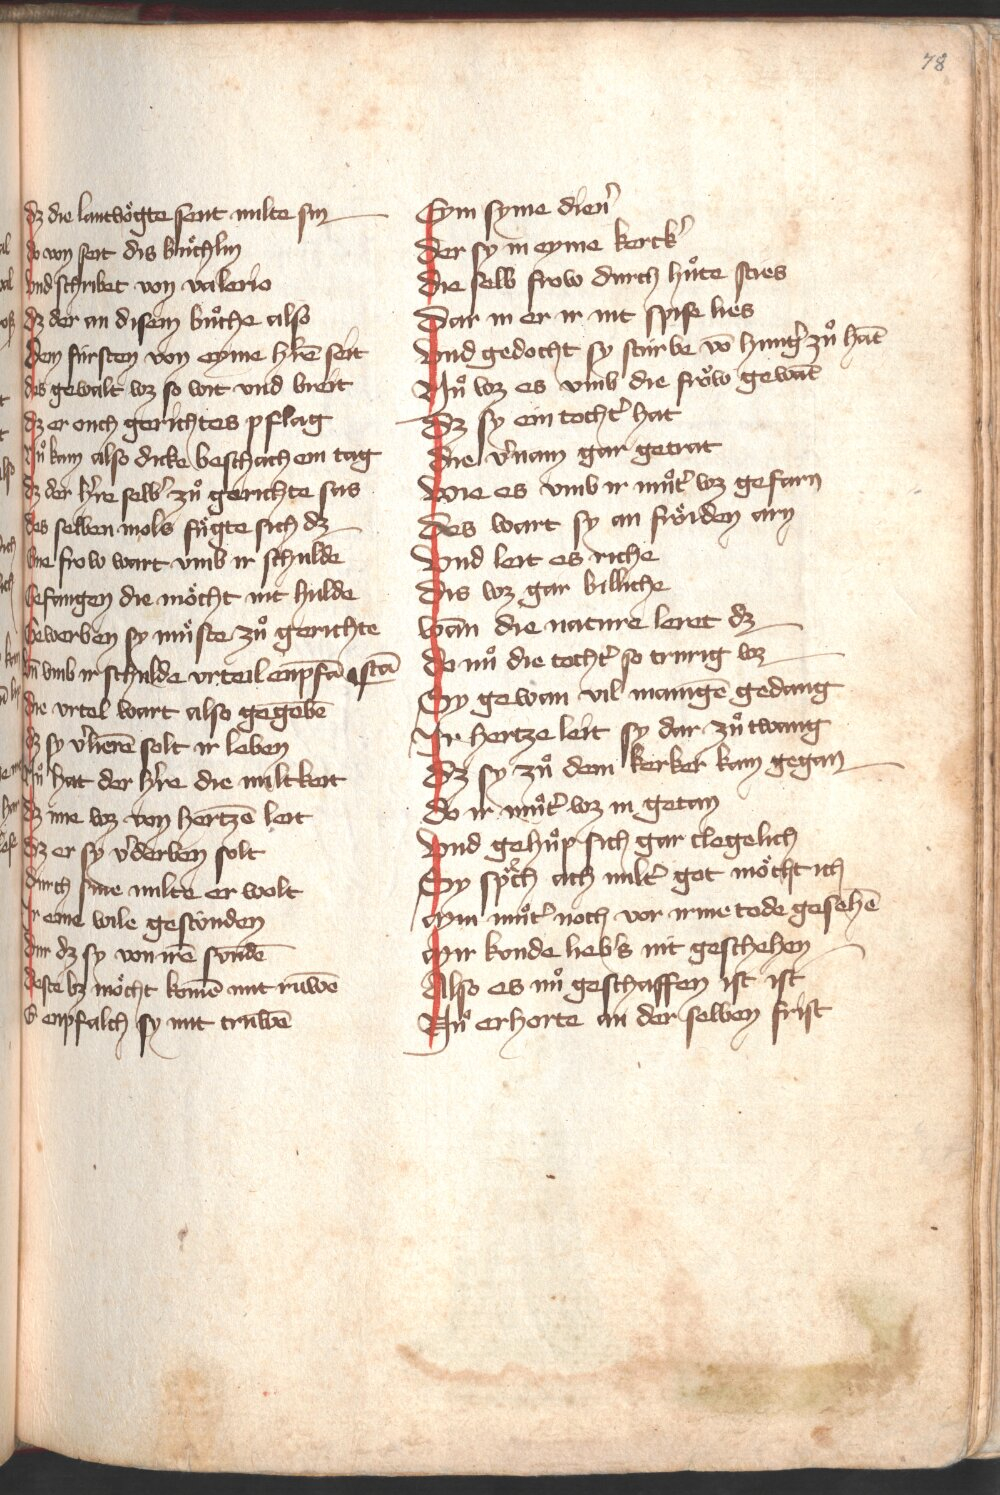 78
dz die lantvögte sent milte sin
do von seit dis büchlin
vnd schribet von valerio
dz der an disem bůche also
dem fürsten von eyme hr̄rē seit
des gewalt wz so wit vnd breit
dz er ouch gerichtes pflag
Nů kam also dicke beschach ein tag
dz der hr̄re selb zů gerichte sas
des selben mols fůgte sich dz
Eine frow wart vmb ir schulde
Gefangen die möcht nit hulde
Gewerben sy můste zů gerichte stā
vn̄ vmb ir schulde vrteil enpfā
die vrtel wart also gegebē
dz sy v'lierē solt ir leben
Nů hat der hr̄re die miltkeit
dz ime wz von hertzē leit
dz er sy v'derben solt
durch sine milte er wolt
Ir eine wile gestunden
dur dz sy von irē sundē
deste bz möcht komē mit rüwē
Er enpfalch sy mit truwē
Eym syme dien'
der sy in eyme kerck'
die selb frow durch hůte sties
Dar in er ir nit spise lies
Vnd gedocht sy stürbe vō hung' zů hāt
Nů wz es vmb die fröw gewāt
Dz sy ein tocht' hat
die v'nam gar getrat
Wie es vmb ir můt' wz gefarn
Des wart sy an fröiden arn
Vnd leit es riche
dis wz gar billiche
wān die nature leret dz
do nů die tocht' so trurig wz
Sy gewan vil manigē gedang
Ir hertze leit sy dar zů twang
Dz sy zů dem kerker kam gegan
do ir můt' wz in getan
Vnd gehůp sich gar clegelich
Sy sprch ach milt' got möcht ich
Mym můt' noch vor irme tode gesehē
Mir konde lieb's nit geschehen
Also es nů geschaffen ist ist
Nů erhorte an der selben frist